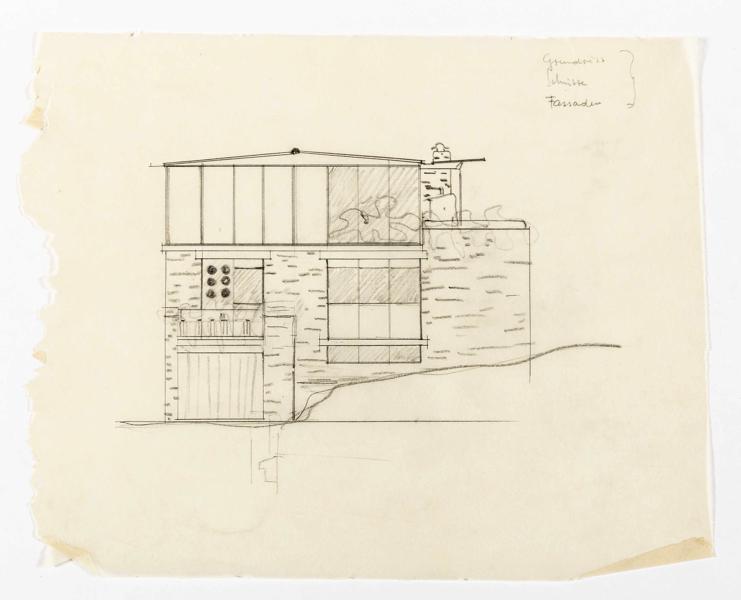 Grundriss
Schnitte
Fassaden